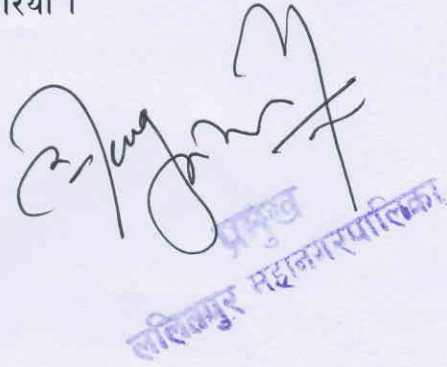 रियो ।
प्रमुख
ललितपुर महानगरपालिका